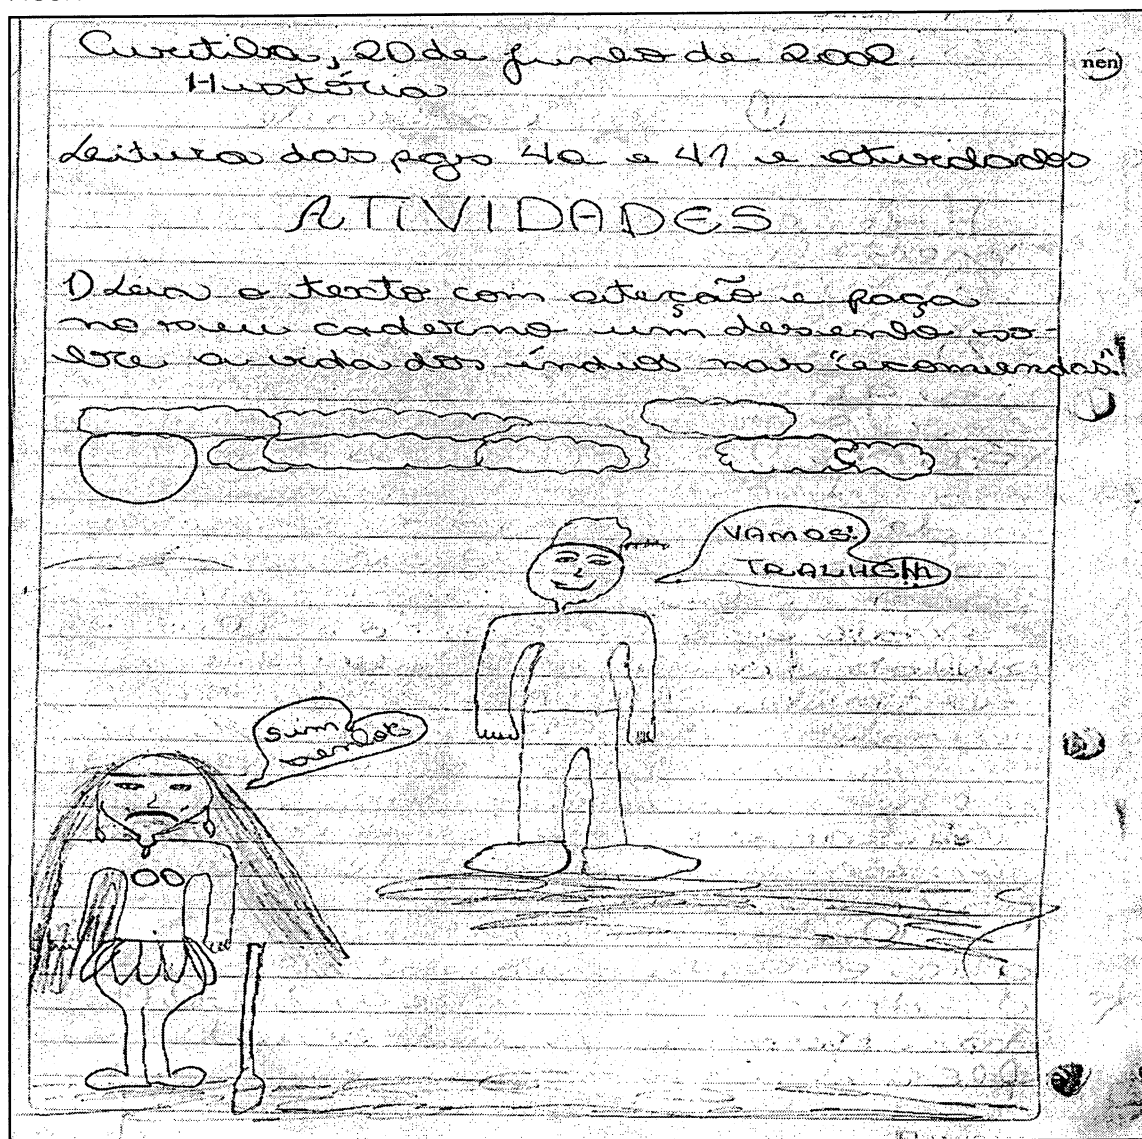 Curitiba, 20 de junho de 2002
nên
História
Leitura das pgs 40 e 41 e atividades
ATIVIDADES
1) Leia o texto com atenção e faça
no seu caderno um desenho so-
bre a vida dos índios nas "ecomiendas".
VAMOS!
TRALHEM
sim
senhor